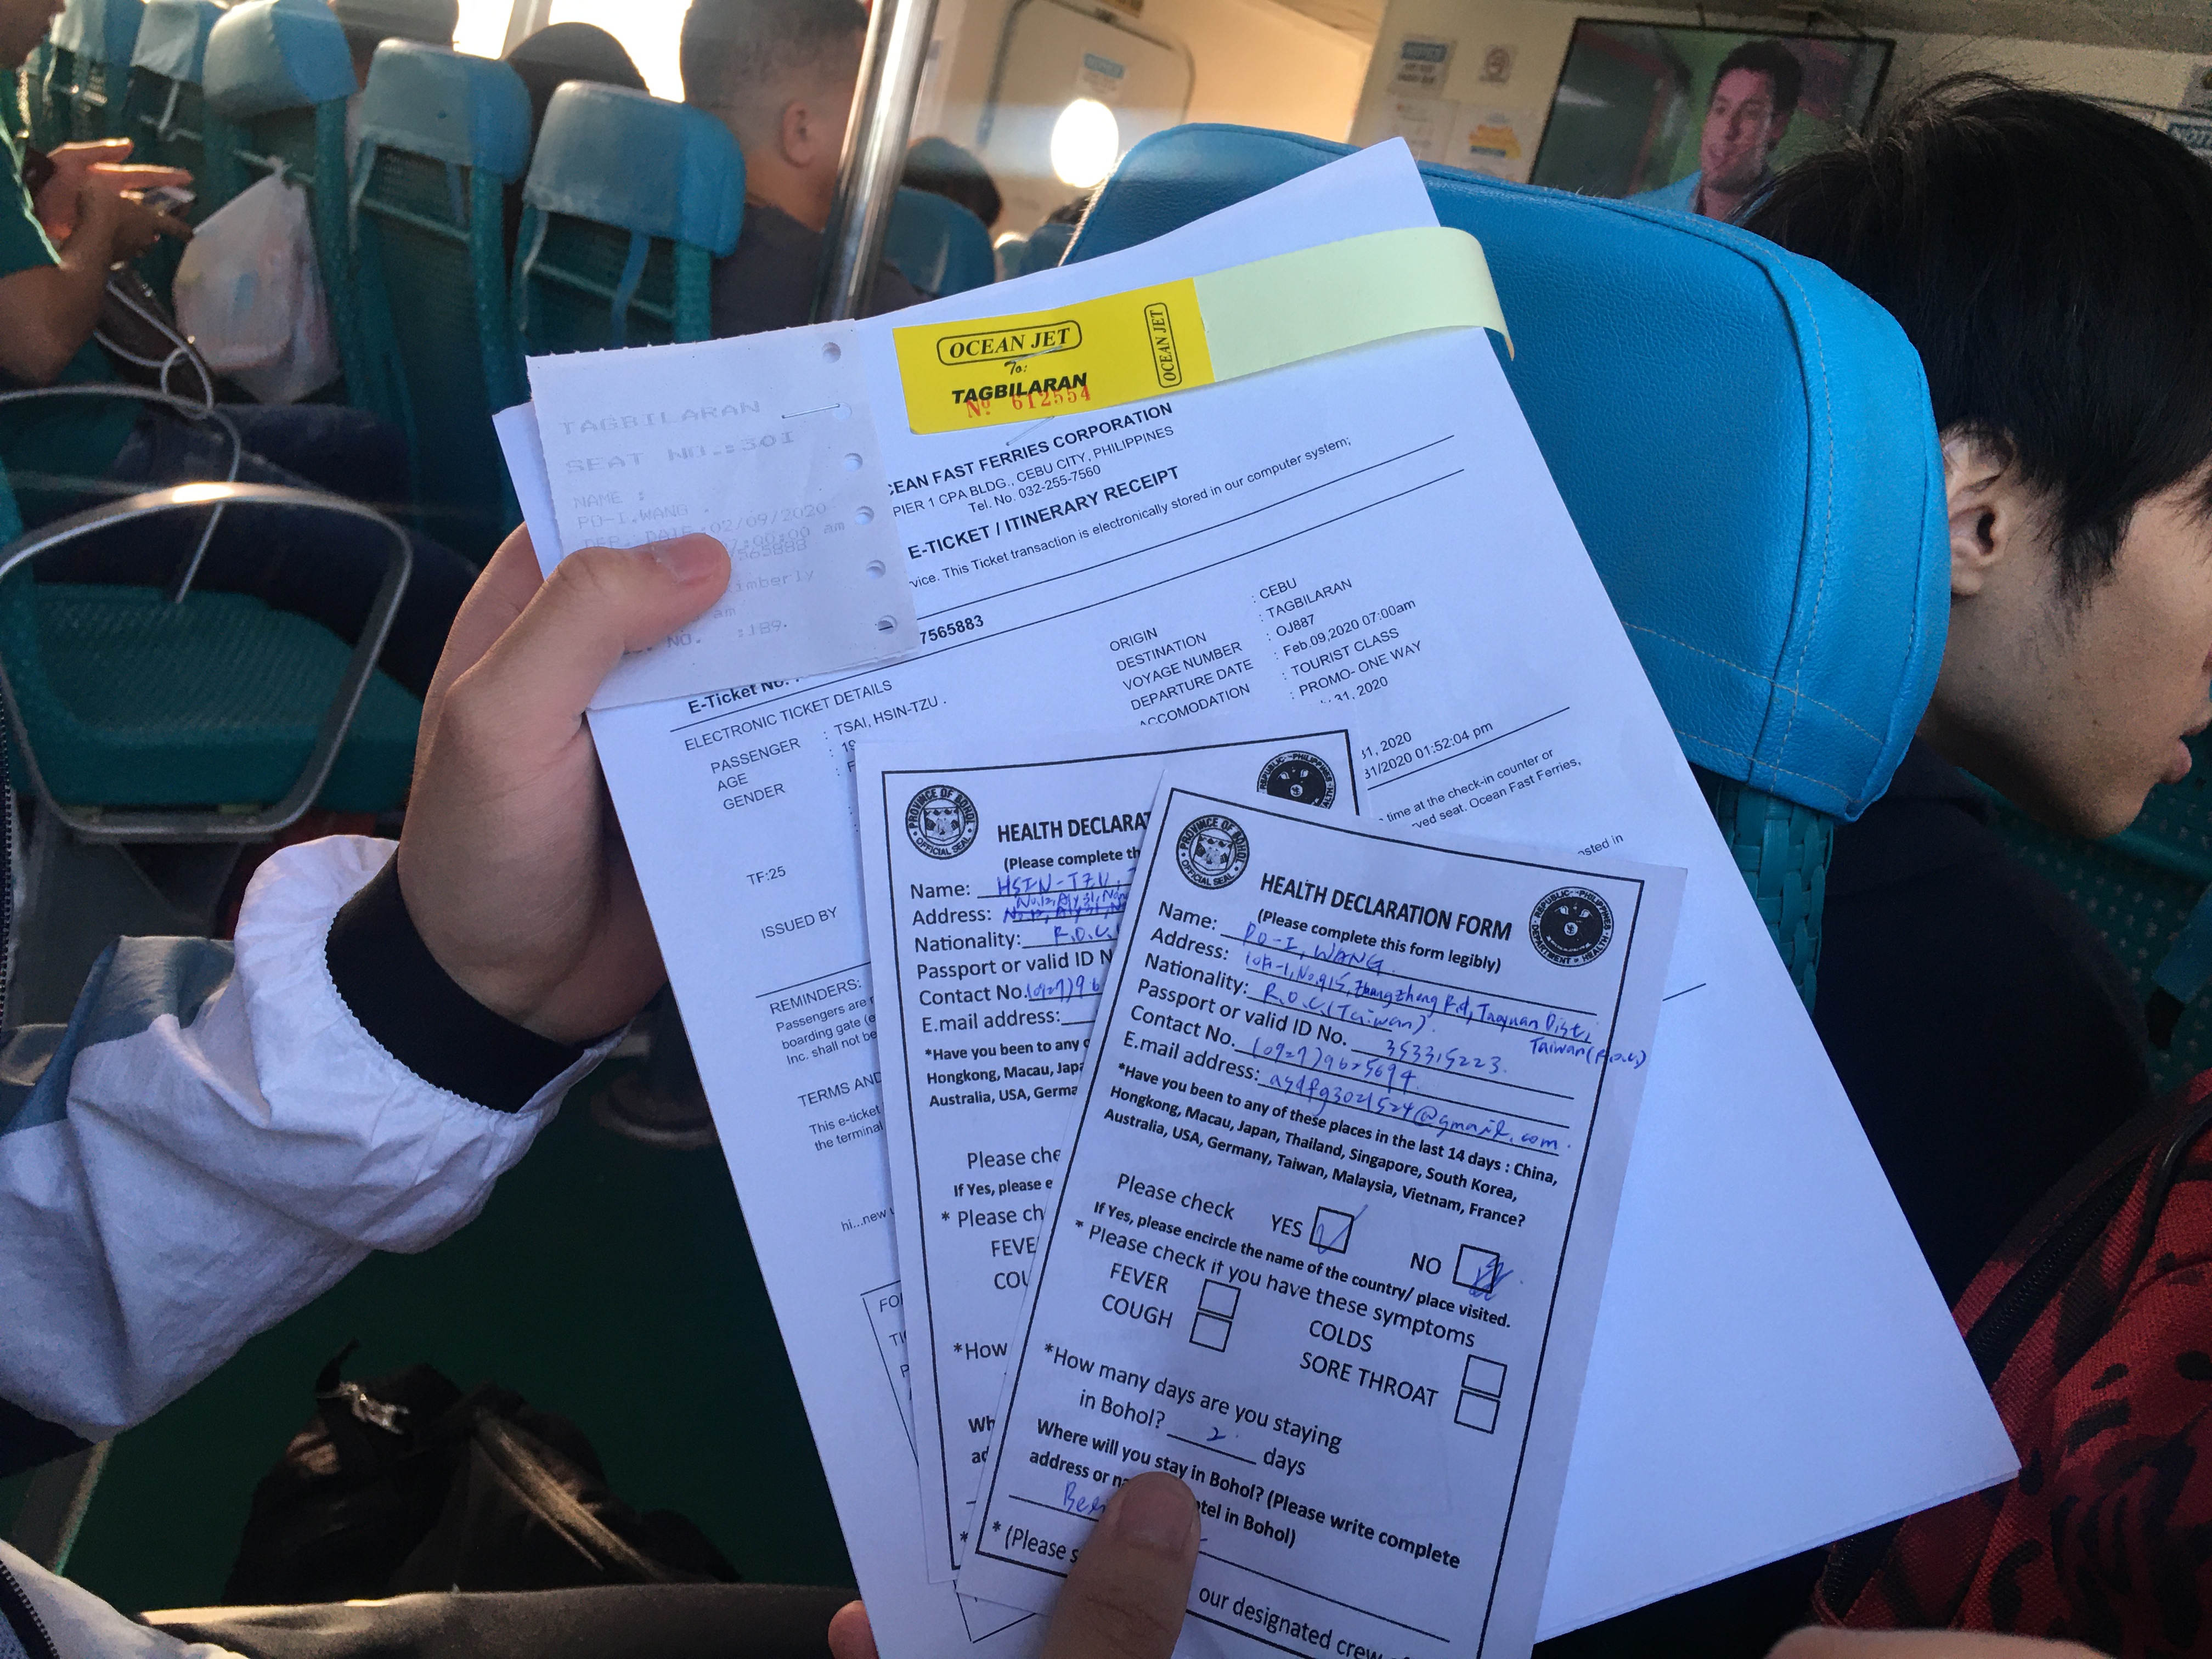 OCEAN JET
To:
TAGBILARAN
Nº 612554
OCEAN JET
TAGBILARAN
SEAT NO.:30I
NAME :
PO-I.WANG .
DEP. DATE:02/09/2020
7:00:00 am
565888
imberly
am
NO. :189.
CEAN FAST FERRIES CORPORATION
PIER 1 CPA BLDG., CEBU CITY, PHILIPPINES
Tel. No. 032-255-7560
E-TICKET / ITINERARY RECEIPT
vice. This Ticket transaction is electronically stored in our computer system;
E-Ticket No. 7565883
ELECTRONIC TICKET DETAILS
PASSENGER : TSAI, HSIN-TZU .
AGE : 19
GENDER : F
ORIGIN : CEBU
DESTINATION : TAGBILARAN
VOYAGE NUMBER : OJ887
DEPARTURE DATE : Feb.09,2020 07:00am
ACCOMODATION : TOURIST CLASS
: PROMO- ONE WAY
31, 2020
31, 2020
31/2020 01:52:04 pm
time at the check-in counter or
rved seat. Ocean Fast Ferries,
osted in
TF:25
ISSUED BY
REMINDERS:
Passengers are r
boarding gate (e
Inc. shall not be
TERMS AND
This e-ticket
the terminal
hi...new
FO
PROVINCE OF BOHOL
OFFICIAL SEAL
HEALTH DECLARAT
(Please complete th
Name: HSIN-TZU,
Address: No.12, Aly.31,
Nationality: R.O.C.
Passport or valid ID N
Contact No. (0927)96
E.mail address:
*Have you been to any o
Hongkong, Macau, Japa
Australia, USA, Germa
Please che
If Yes, please e
* Please ch
FEVE
COU
*How
Wh
ad
*
PROVINCE OF BOHOL
OFFICIAL SEAL
REPUBLIC PHILIPPINES
DEPARTMENT HEALTH
HEALTH DECLARATION FORM
(Please complete this form legibly)
Name: PO-I, WANG.
Address: 10F.-1, No.915, Zhongzheng Rd, Taoyuan Dist.,
Taiwan(R.O.C.)
Nationality: R.O.C.(Taiwan).
Passport or valid ID No. 353315223.
Contact No. (0927)9625694.
E.mail address: asdfg3021524@gmail.com.
*Have you been to any of these places in the last 14 days : China,
Hongkong, Macau, Japan, Thailand, Singapore, South Korea,
Australia, USA, Germany, Taiwan, Malaysia, Vietnam, France?
Please check YES NO
If Yes, please encircle the name of the country/ place visited.
* Please check if you have these symptoms
FEVER COLDS
COUGH SORE THROAT
*How many days are you staying
in Bohol? 2. days
Where will you stay in Bohol? (Please write complete
address or na tel in Bohol)
* (Please s our designated crew